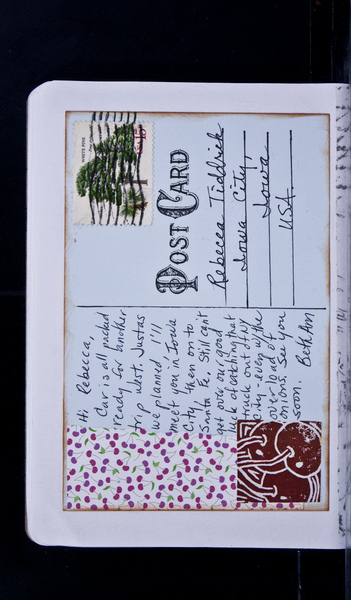 Hi Rebecca,
Car is all packed
ready for another
trip west. Just as
we planned!!!!
meet you in Iowa
City then on to
Santa Fe. Still can't
get over our good
luck of catching that
truck out of NY
overload of
onions. See you
soon. Beth Ann
POST CARD
Rebecca Tiddrick
Iowa City,
Iowa
USA
WHITE PINE
USA 15c